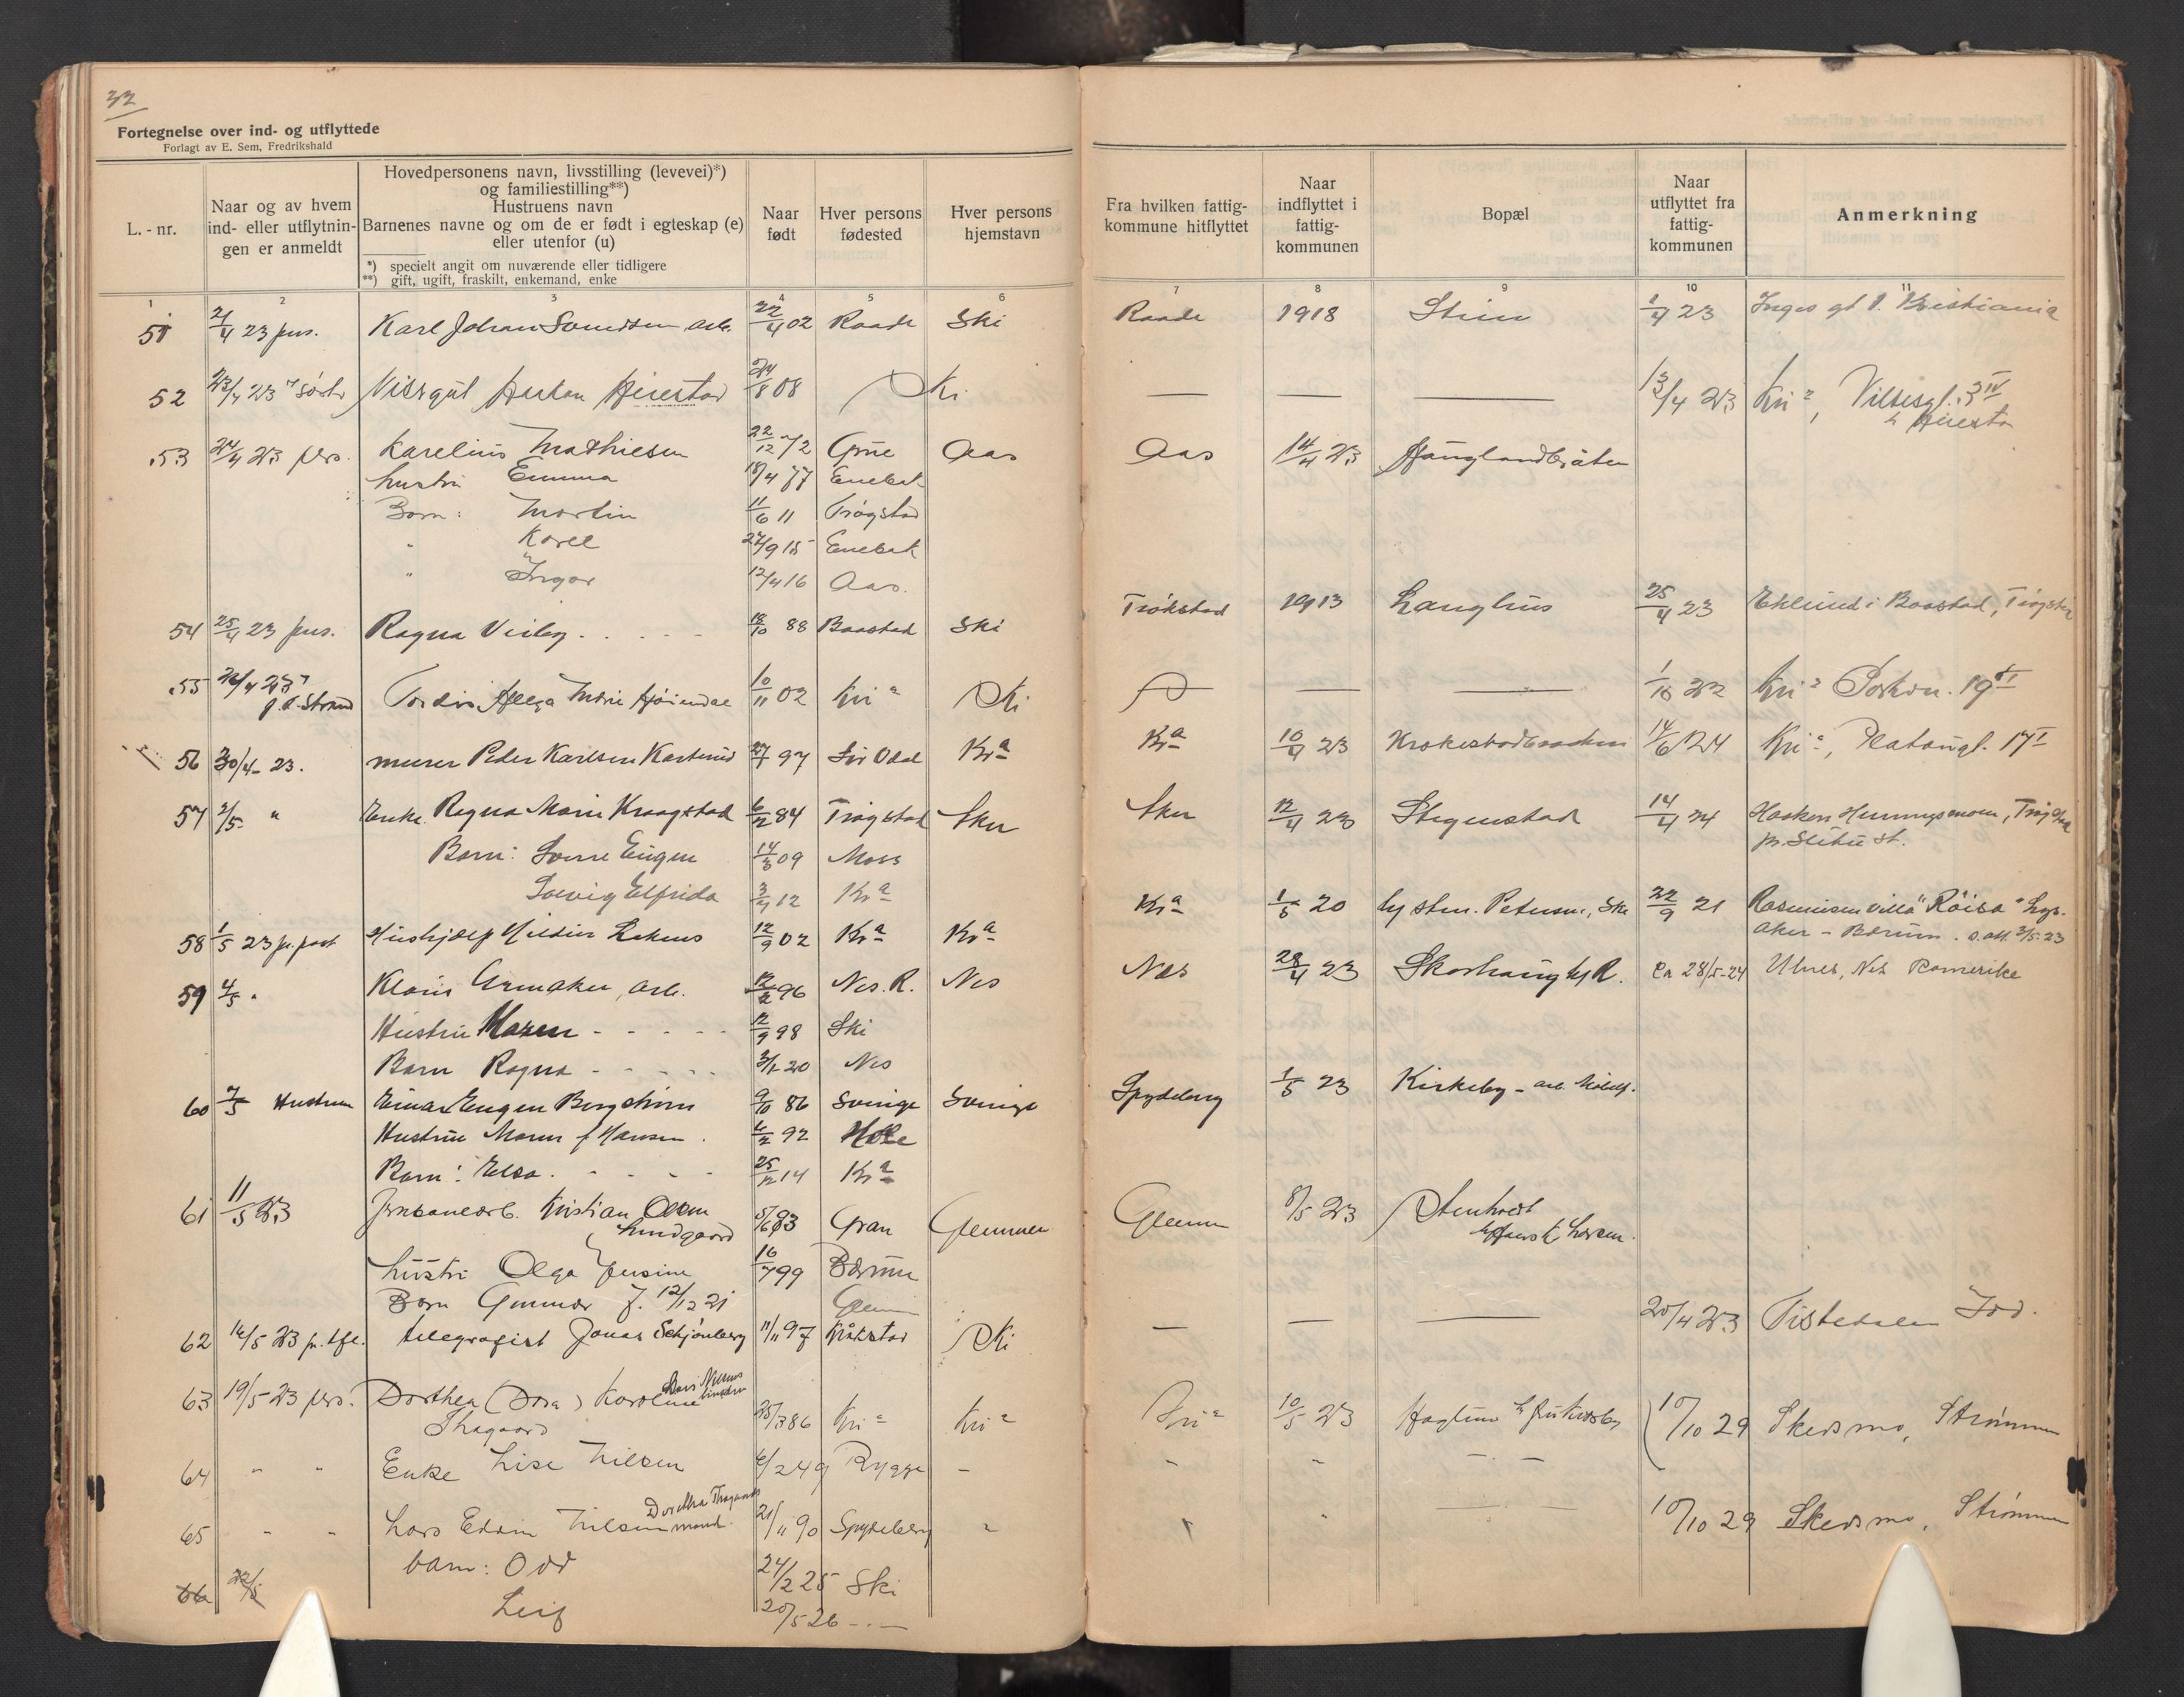 32
Fortegnelse over ind- og utflyttede
Forlagt av E. Sem, Fredrikshald
L. - nr.
Naar og av hvem ind- eller utflytnin- gen er anmeldt
Hovedpersonens navn, livsstilling (levevei)*)
og familiestilling**)
Hustruens navn
Barnenes navne og om de er født i egteskap (e)
eller utenfor (u)
*) specielt angit om nuværende eller tidligere
**) gift, ugift, fraskilt, enkemand, enke
Naar født
Hver persons fødested
Hver persons hjemstavn
Fra hvilken fattig- kommune hitflyttet
Naar indflyttet i fattig- kommunen
Bopæl
Naar utflyttet fra fattig- kommunen
Anmerkning
1 2 3 4 5 6 7 8 9 10 11
51 2/4 23 pers. Karl Johan Svendsen arb. 22/4 02 Raade Ski Raade 1918 Stien 1/4 23 Inges gt 1. Kristiania
52 23/4 23 Haakon Heiestad 24/8 08 Ski — — — 13/4 23 Kri a,
53 24/4 23 pers. Karelius Mathiesen 22/12 72 Grue Aas Aas 14/4 23 Hauglandbråten
hustru Emma 18/4 77 Enebak
Born: Martin 11/6 11 Trøgstad
" Karel 27/9 15 Enebak
" Ingar 12/4 16 Aas.
54 25/4 23 pers. Ragna Visby 18/10 88 Baastad Ski Trøkstad 1913 Langhus 25/4 23 Eklund i Baastad, Trøgstad
55 26/4 23 Strand Tordis Helga Marie Høiendal 10/11 02 Kri a Ski — — 1/10 22 Kri a 19 VI
56 30/4 - 23. murer Peder Karlsen Karterud 27/7 97 Sør Odal Kr a Kr a 10/4 23 Krokestadbraaten 14/6 24 Kri a, Platougt. 17 I
57 2/5 " Enke Ragna Marie Kraagstad 6/12 84 Trøgstad Sku Sku 12/4 23 Stegenstad 14/4 24 Haaken Hemnesmoen, Trøgstad
pr. Slitu st.
Barn: Sverre Eugen 14/3 09 Moss
Solveig Elfrida 3/4 12 Kr a
58 1/5 23 pr. post Hushjælp 12/9 02 Kr a Kr a Kr a 1/5 20 Petersen, Ski 22/9 21 Rasmusen villa "Röisa" Lys-
aker - Bærum. 3/5 23
59 4/5 " Klaus Armaker, arb. 12/2 96 Nes. R. Nes Nes 28/4 23 Skorhaug by R. Ca 28/5-24 Ulnes, Nes Romerike
Hustru Maren 12/9 98 Ski
Barn Ragna 3/1 20 Nes
60 7/5 Hustruen Einar Eugen Bergstrøm 9/10 86 Svinge Svinge Spydeberg 1/5 23 Kirkeby - arb.
Hustru Maren f Hansen. 6/2 92 Hole
Barn: Elsa 25/12 14 Kr a
61 11/5 23 Jernbanearb. Kristian Olsen
Lundgaard 5/6 93 Gran Glemmen Glemm 8/5 23 Stenhvedt
Larsen.
hustru Olga Jensine 16/7 99 Bærum
Barn Gunnar f. 12/12 21 Glemm
62 16/5 23 pr. tlf. telegrafist Jonas Schjønberg 11/11 97 Kråkstad Ski — — — 20/4 23 Tistedalen Idd.
63 19/5 23 pers. Dorthea (Dora) Karoline Lars Nilsens hustru
Thagaard 25/3 86 Kri a Kri a Kri a 10/5 23 Haglund 10/10 29 Skedsmo, Strømmen
64 " " Enke Lise Nilsen 6/2 49 Rygge — " " — " —
65 " " Lars Edvin Nilsen Dorthea Thagaards mand. 21/11 90 Spydeberg " " " — " — 10/10 29 Skedsmo, Strømmen
barn: Odd 24/2 25 Ski
66 22/5 Leif 20/5 26 — " —